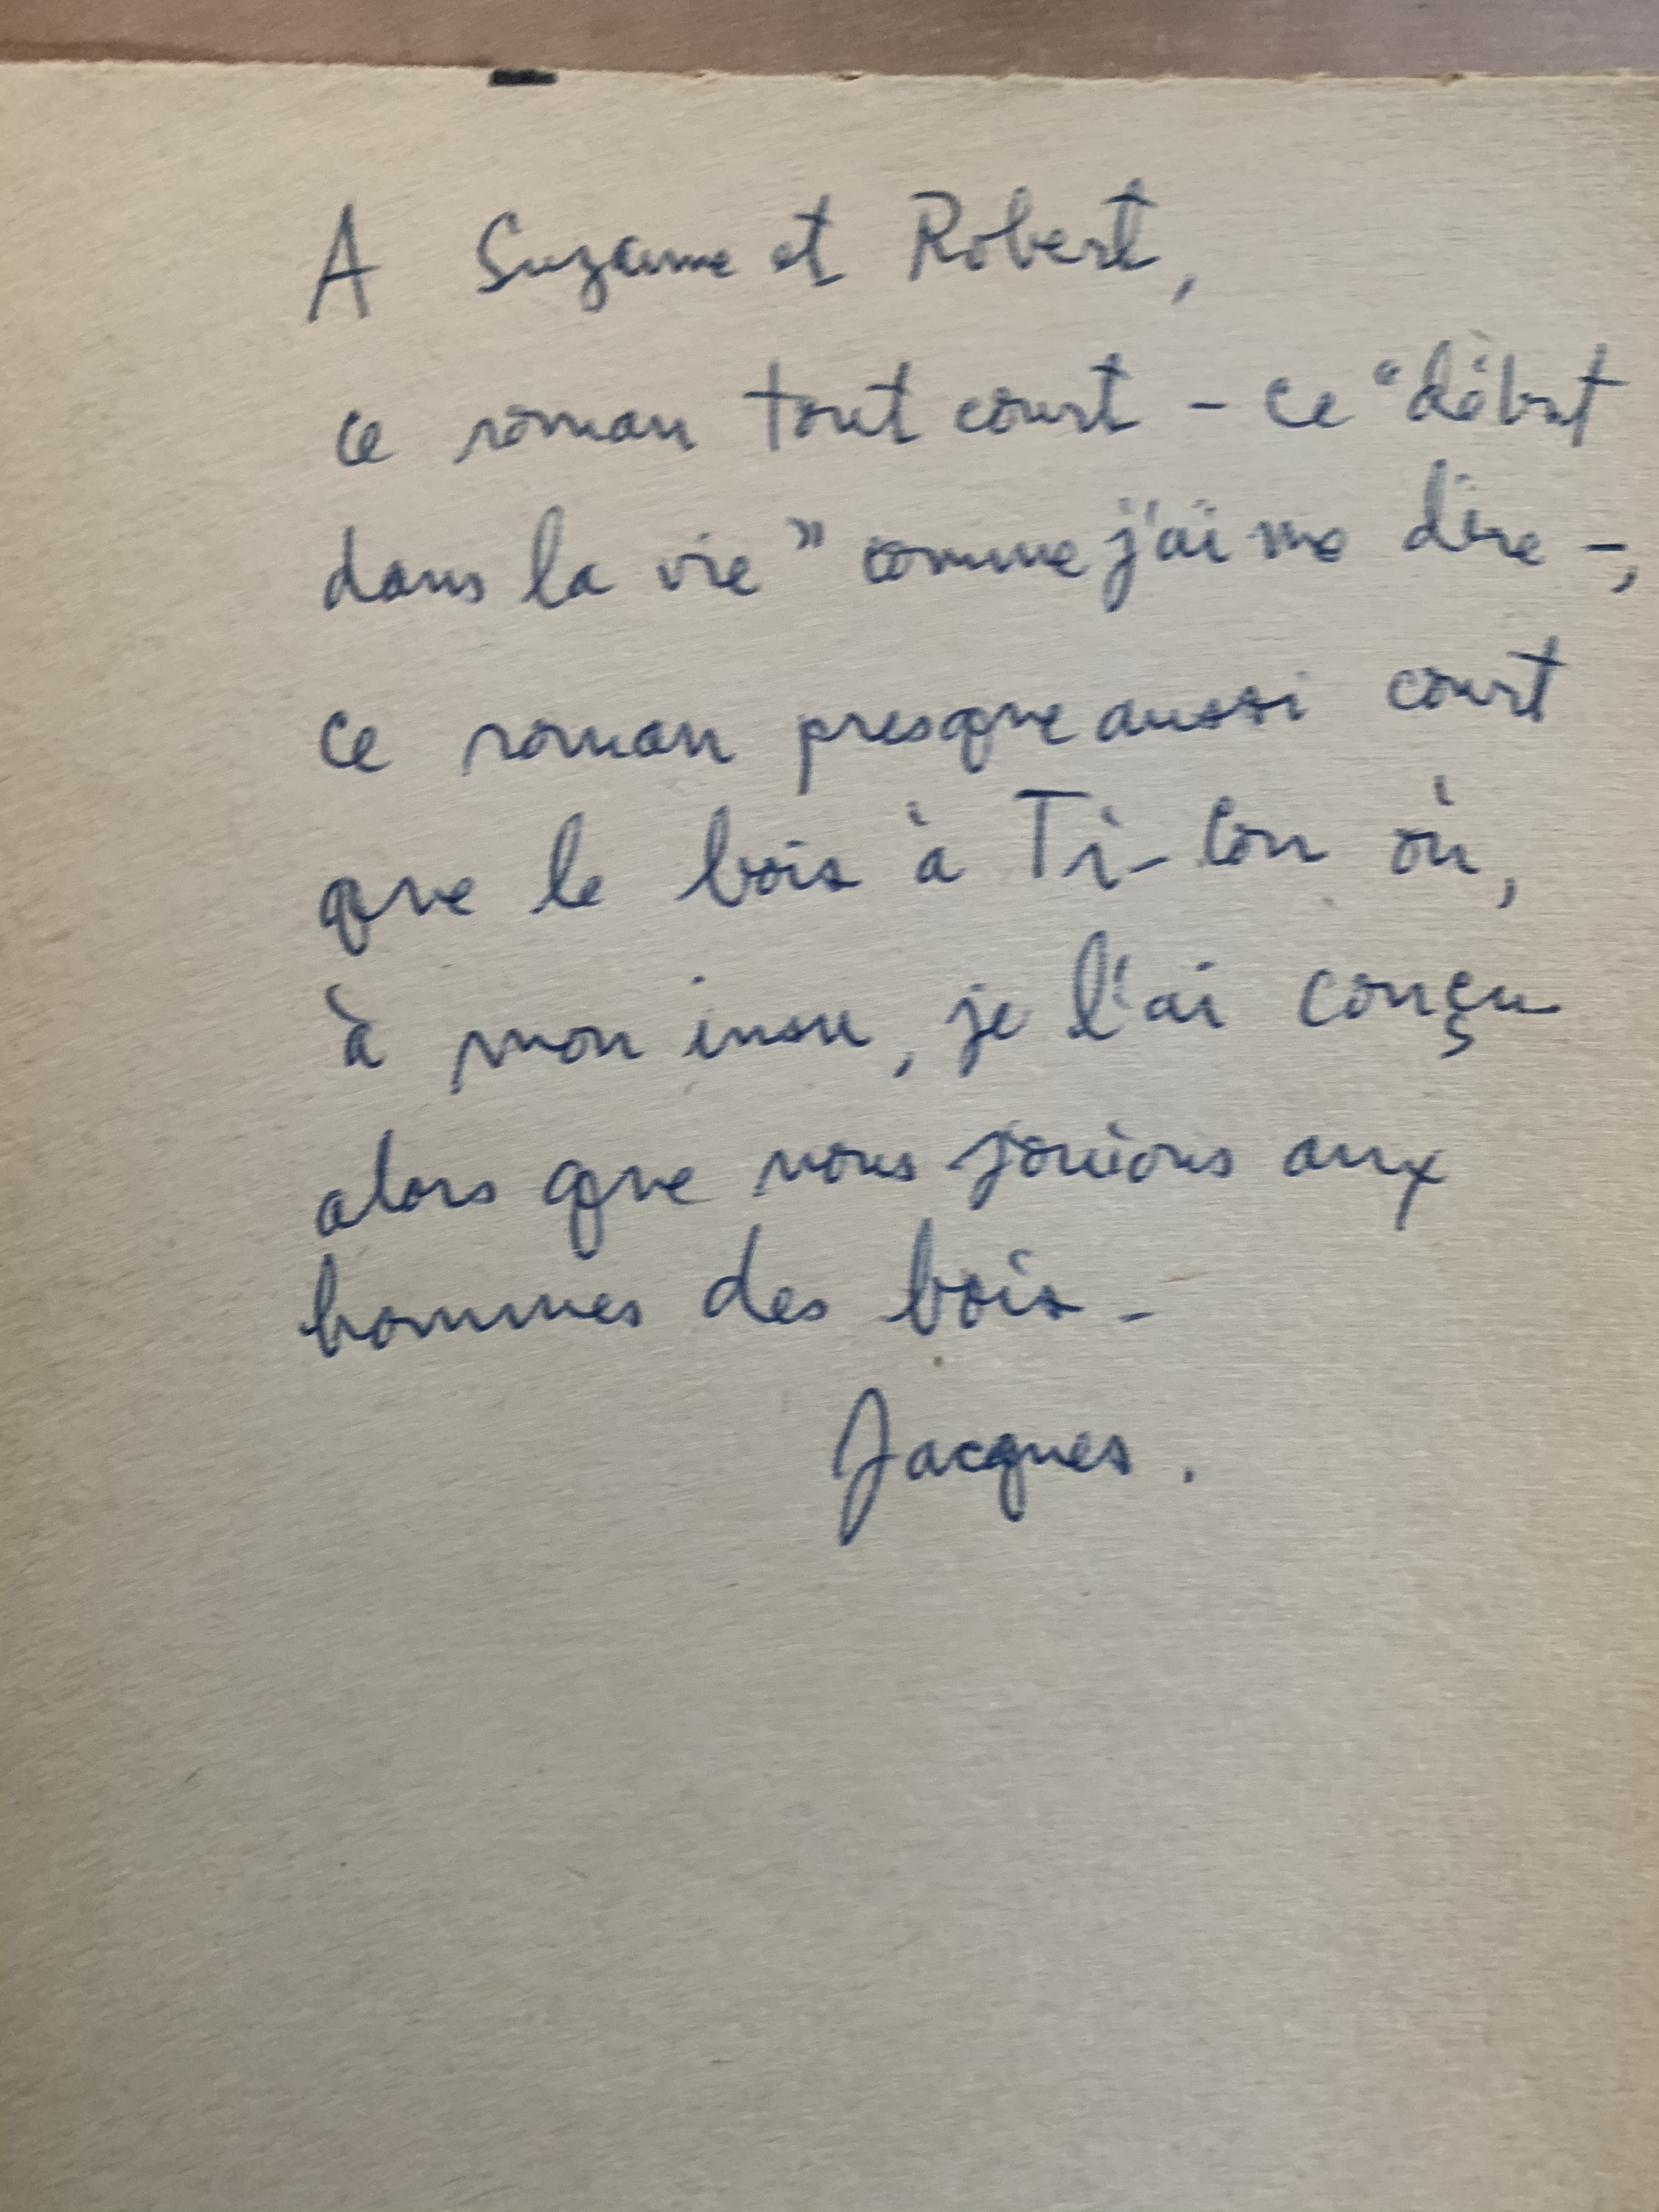 A Suzanne et Robert,
ce roman tout court - ce "début
dans la vie" comme j'aime dire -,
ce roman presque aussi court
que le bois à Ti-Con où,
à mon insu, je l'ai conçu
alors que nous jouions aux
hommes des bois -
Jacques.